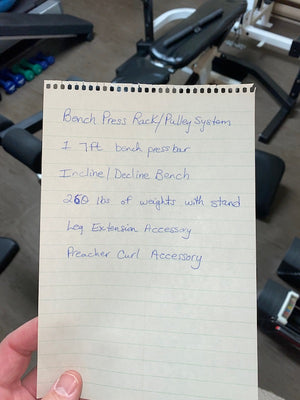 Bench Press Rack/Pulley System
1 7ft bench press bar
Incline/Decline Bench
260 lbs of weights with stand
Leg Extension Accessory
Preacher Curl Accessory